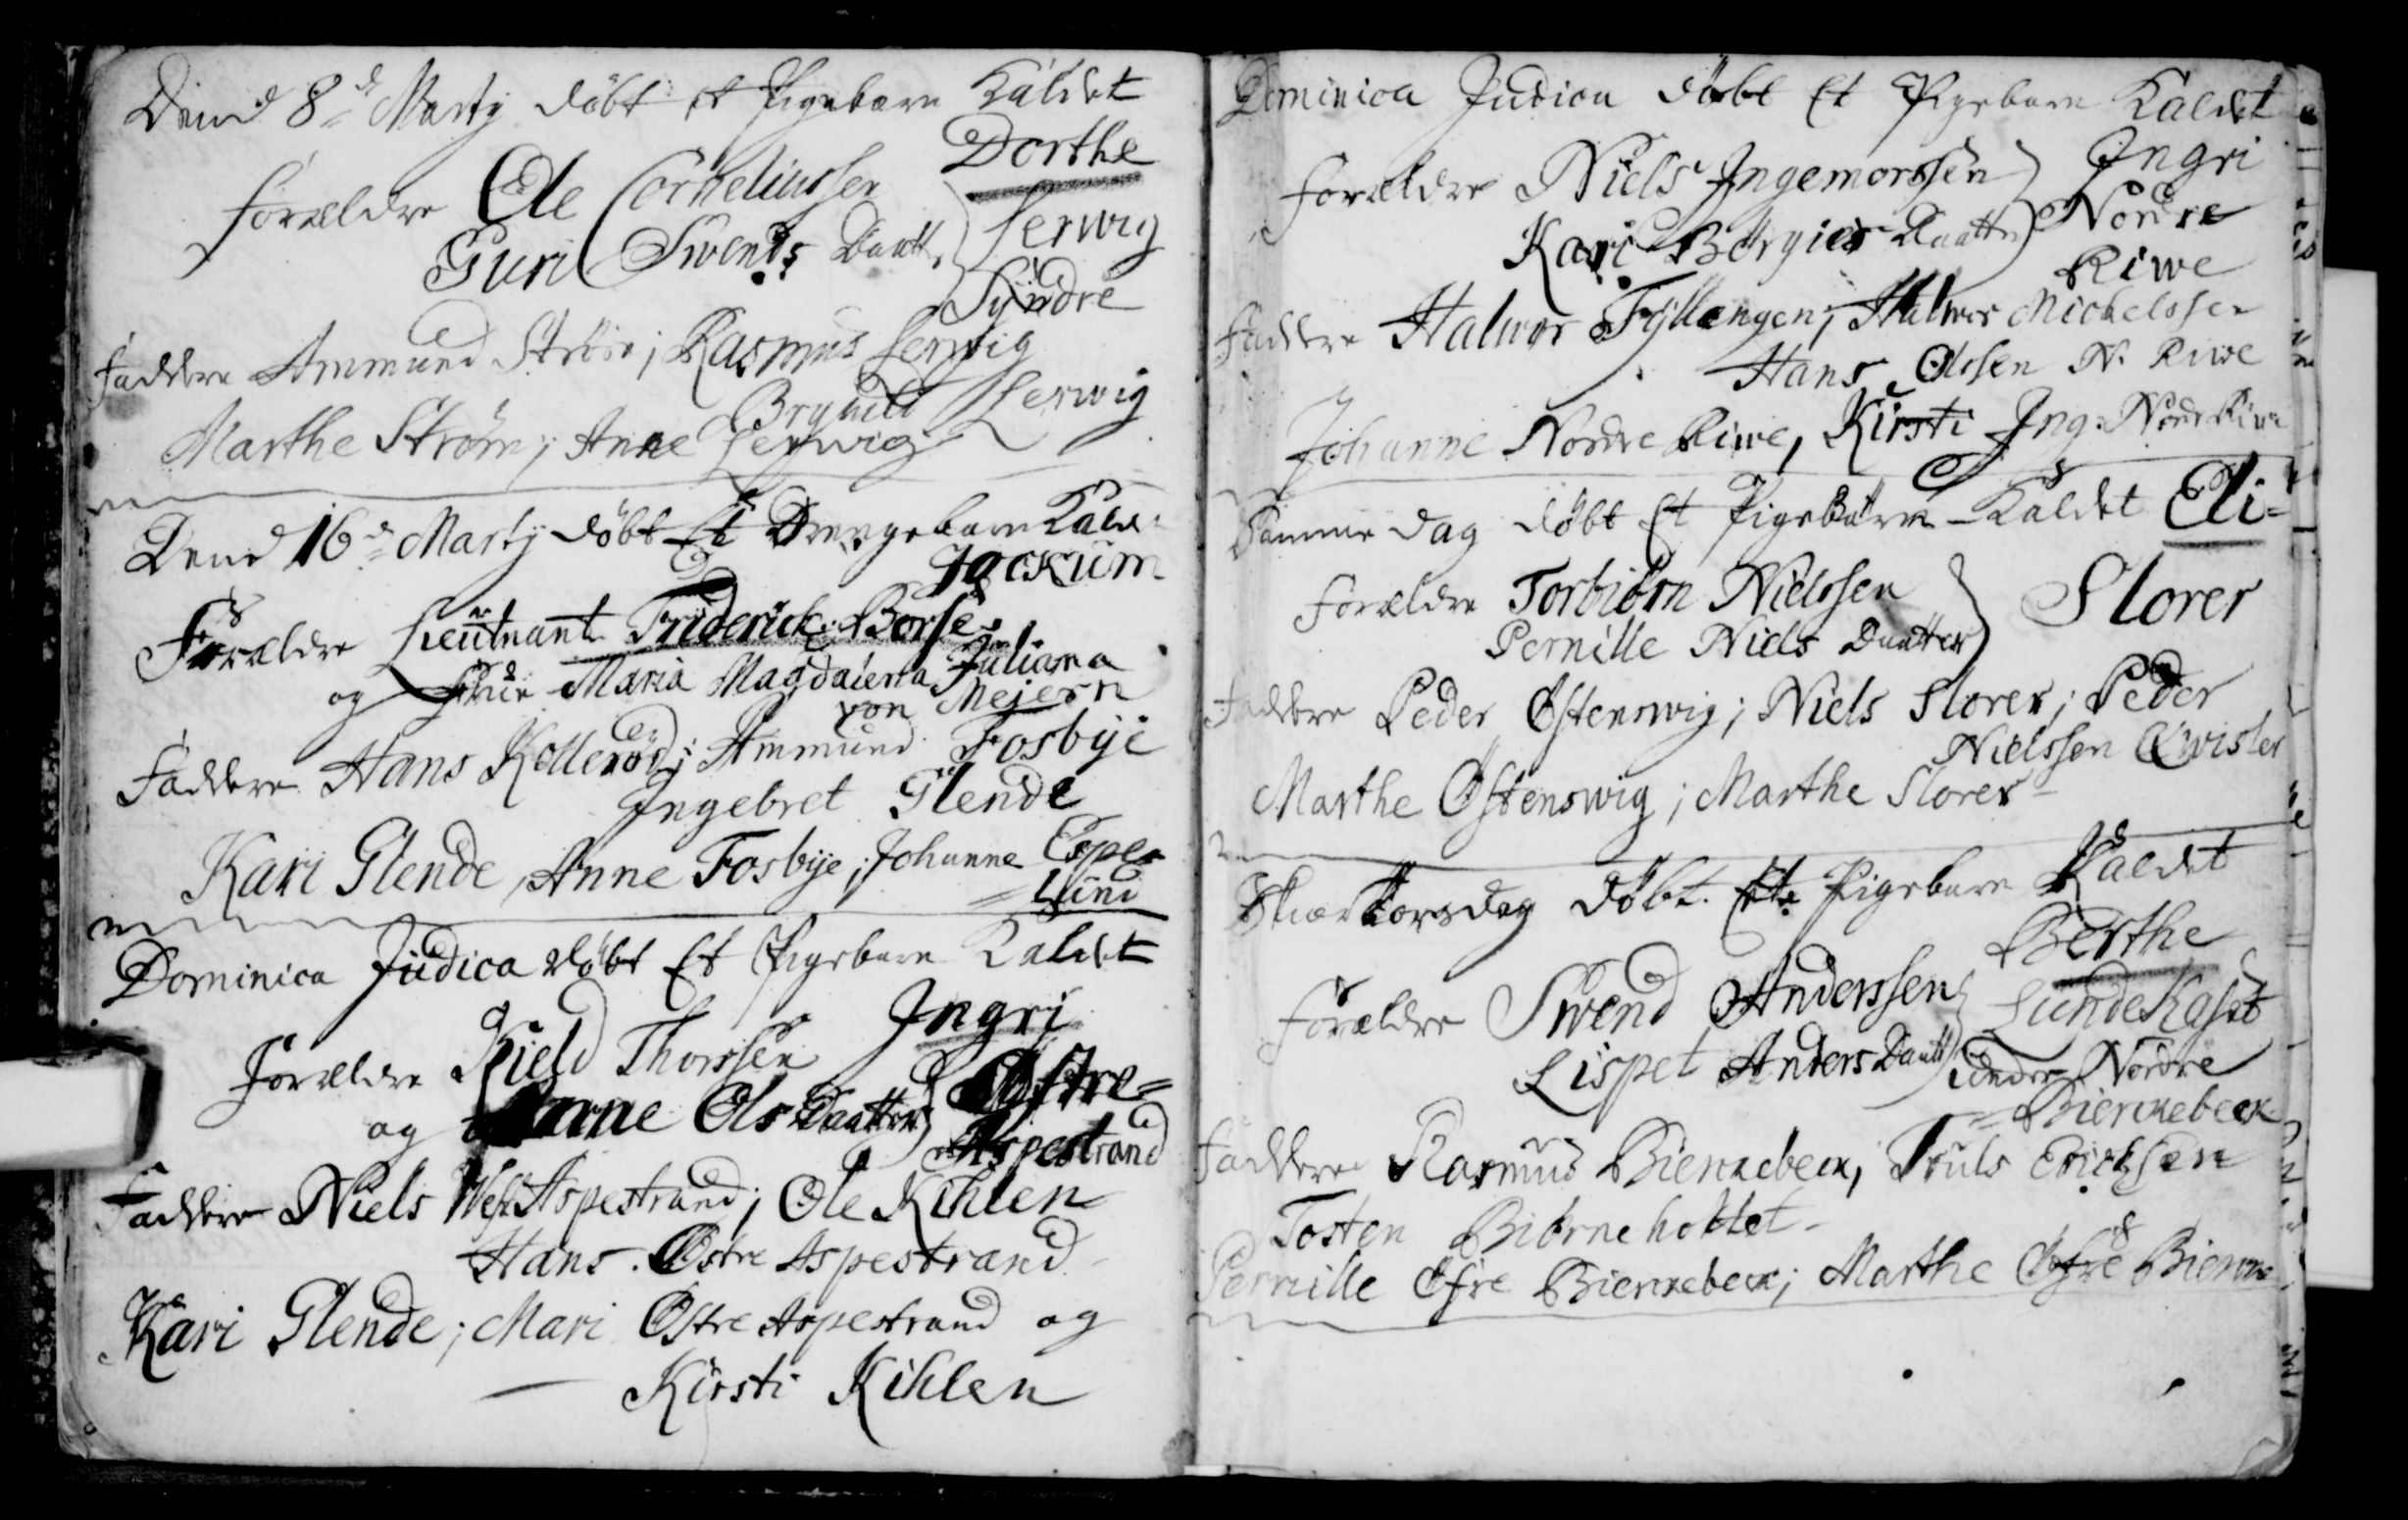 Dend 8d Martij döbt et Pigebarn Kaldet
Dorthe
Forældre Ole Corneliussen
Guri Swends Daatt. Herwig
Syndre
Faddere Ammund Ström; Rasmus Herwig
Brynild Herwig
Marthe Ström; Anne Herwig
Dend 16d Martij döbt Et Drengebarn Kald:
Jockum
Forældre Lieutnant Friderick Borse
og Frue Maria Magdalena Juliana
von Mejern
Faddere Hans Kolleröd; Ammund Fosbye
Ingebret Glende
Kari Glende, Anne Fosbye; Johanne Espe-
=lund
Dominica Judica döbt Et Pigebarn Kaldet
Ingri
Forældre Kield Thorssen
og Anne Ols Daatter Östre=
Aspestrand
Faddere Niels West Aspestrand; Ole Kihlen
Hans Östre Aspestrand
Kari Glende; Mari Östre Aspestrand og
Kirsti Kihlen
Dominica Judica döbt Et Pigebarn Kaldet
Forældre Niels Ingemorssen Ingri
Kari Börgies Daatter Nordre
Riwe
Faddere Halwor Fyllengen; Halwor Michelssen
Hans Olssen N. Riwe
Johanne Nordre Riwe, Kirsti Ing: Nord: Riwe
Samme Dag döbt Et Pigebarn Kaldet Eli=
Forældre Torbiörn Nielssen
Storer
Pernille Niels Daatter
Faddere Peder Östenswig; Niels Storer; Peder
Nielssen Qwisler
Marthe Östenswig; Marthe Storer
Skiær Torsdag döbt Et Pigebarn Kaldet
Berthe
Forældre Swend Anderssen LundeKaset
Lispet Anders Daatt Under Nordre
=Biennebeck
Faddere Rasmus Biennebeck, Truls Erichsen
Tosten Biörneholtet
Pernille Öfre Biennebeck; Marthe Öfre Bienne